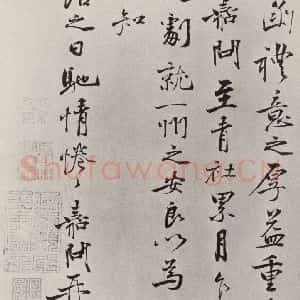 禮意之厚益重
嘉問至青社累月乍
劇就一州之安良以為
知
之日馳情惓々嘉問再
Shufawang.CN